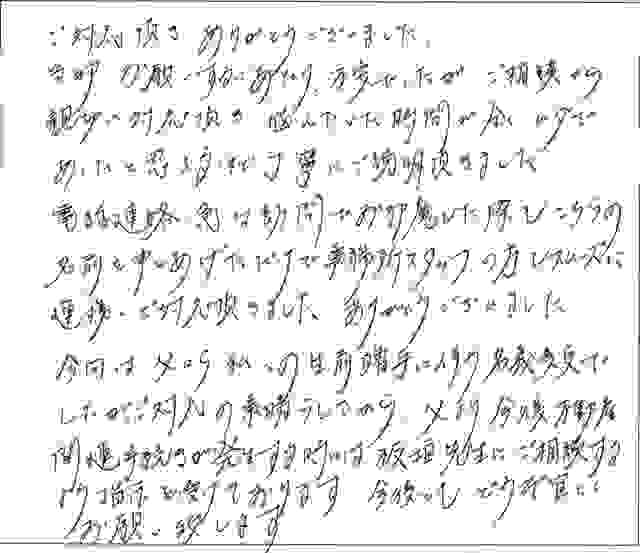 ご対応頂き ありがとうございました。
お願いするにあたり、不安でしたが ご相談から
親切に対応頂き 悩んでいた時間が全くムダで
あったと思える程 丁寧にご説明頂きました
電話連絡、急な訪問でお邪魔した際もこちらの
名前を申しあげただけで事務所スタッフの方もスムーズに
連携、ご対応頂きました、ありがとうございました
今回は父から私への生前贈与による名義変更で
したがご対応の素晴らしさから、父より今後不動産
関連手続きが発生する時には板垣先生にご相談する
よう指示を受けております 今後とも どうぞ宜しく
お願い致します